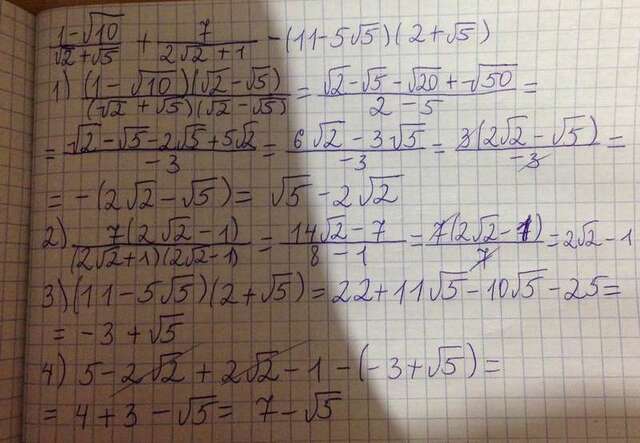 (1-√10)/(√2+√5) + 7/(2√2+1) - (11-5√5)(2+√5)
1) (1-√10)(√2-√5)/((√2+√5)(√2-√5)) = (√2-√5-√20+√50)/(2-5) =
= (√2-√5-2√5+5√2)/(-3) = (6√2-3√5)/(-3) = 3(2√2-√5)/(-3) =
= -(2√2-√5) = √5-2√2
2) 7(2√2-1)/((2√2+1)(2√2-1)) = (14√2-7)/(8-1) = 7(2√2-1)/7 = 2√2-1
3) (11-5√5)(2+√5) = 22+11√5-10√5-25 =
= -3+√5
4) 5-2√2+2√2-1-(-3+√5) =
= 4+3-√5 = 7-√5